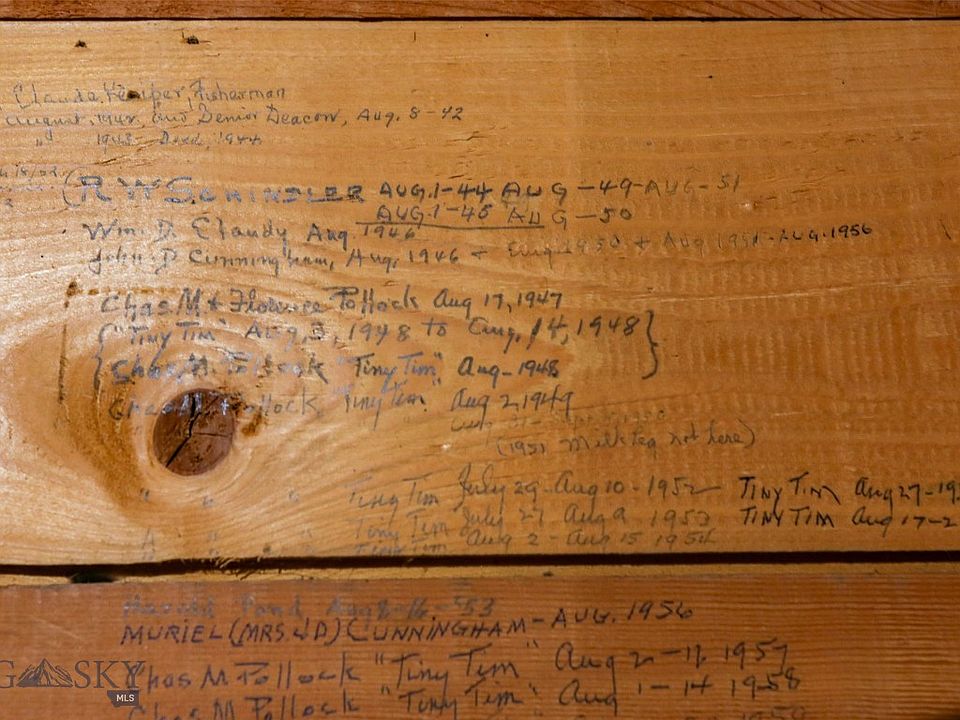 Claude Kemper, Fisherman
August, 1942, and Senior Deacon, Aug. 8-42
" 1943- Died, 1944
(R W SCHINDLER AUG.1-44 AUG-49-AUG-51
AUG.1-45 AUG-50
Wm. D. Claudy Aug. 1946
John D Cunningham, Aug, 1946 + Aug 1950 + Aug 1951-AUG.1956
Chas M + Florence Pollock Aug 17, 1947
{"Tiny Tim" Aug, 3, 1948 to Aug, 14, 1948}
Chas, M. Pollock "Tiny Tim" Aug-1948
Chas M. Pollock "Tiny Tim" Aug 2, 1949
(1951 not here)
" " " Tiny Tim July 29-Aug 10-1952 TINY TIM Aug 27-19
" " " Tiny Tim July 27 Aug 9 1953 TINY TIM Aug 17-2
" " Tiny Tim Aug 2-Aug 15 1954
Harold Pond Aug 53
MURIEL (MRS. JD) CUNNINGHAM-AUG. 1956
Chas M Pollock "Tiny Tim" Aug 2-17 1957
Chas M Pollock "Tiny Tim" Aug 1-14 1958
G SKY
MLS